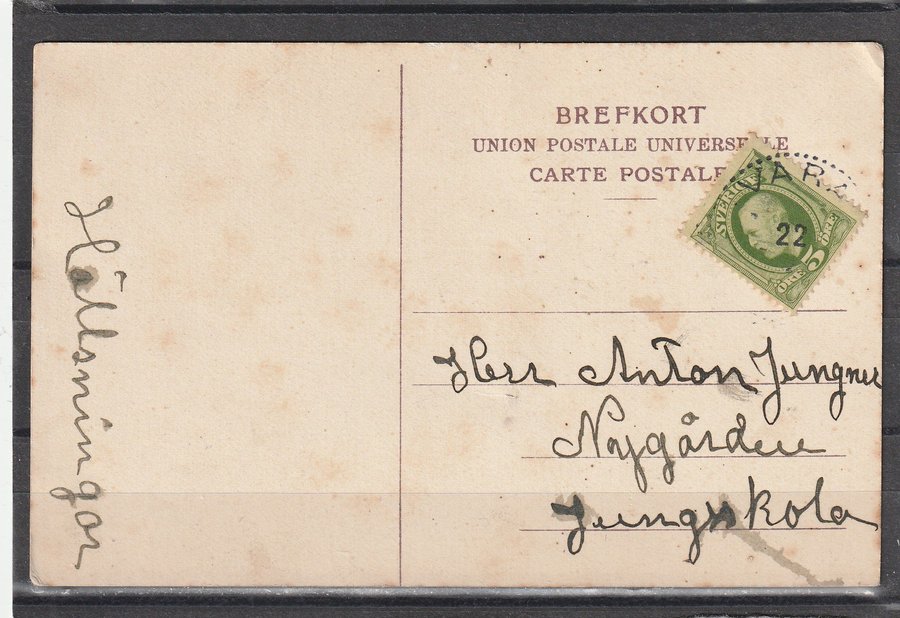 BREFKORT
UNION POSTALE UNIVERSELLE
CARTE POSTALE
VARA
22
SVERIGE
5
ÖRE
ÖRE
Hälsningar
Herr Anton Jungner
Nygården
Jungskola